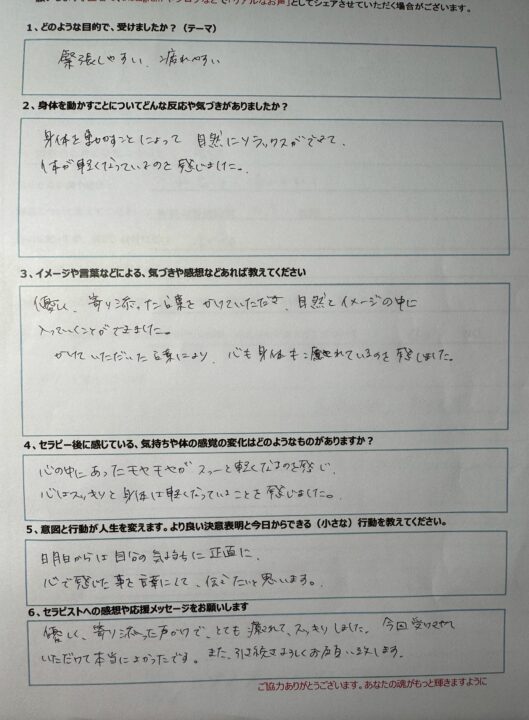 などで「リアルなお声」としてシェアさせていただく場合がございます。
1、どのような目的で、受けましたか？（テーマ）
緊張しやすい、疲れやすい
2、身体を動かすことについてどんな反応や気づきがありましたか？
身体を動かすことによって 自然にリラックスができて、
体が軽くなっているのを感じました。
3、イメージや言葉などによる、気づきや感想などあれば教えてください
優しく、寄り添った言葉をかけていただき、自然とイメージの中に
入っていくことができました。
かけていただいた言葉により、心も身体も癒されているのを感じました。
4、セラピー後に感じている、気持ちや体の感覚の変化はどのようなものがありますか？
心の中にあったモヤモヤがスゥーと軽くなるのを感じ、
心はスッキリと身体は軽くなっていることを感じました。
5、意図と行動が人生を変えます。より良い決意表明と今日からできる（小さな）行動を教えてください。
明日からは自分の気持ちに正直に、
心で感じた事を言葉にして、伝えたいと思います。
6、セラピストへの感想や応援メッセージをお願いします
優しく、寄り添った声かけで、とても癒されて、スッキリしました。今回受けさせて
いただけて本当によかったです。また、引き続きよろしくお願い致します。
ご協力ありがとうございます。あなたの魂がもっと輝きますように